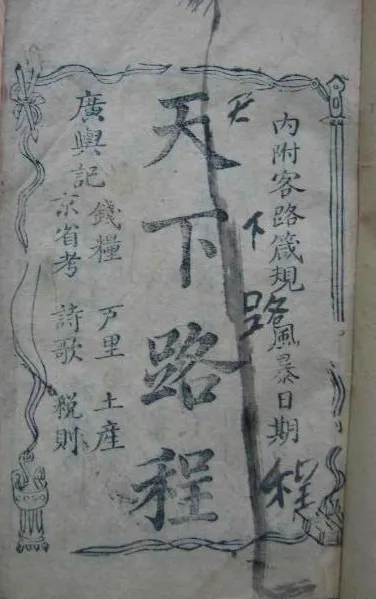 內附客路箴規風暴日期
天下路程
天下路程
廣輿記
錢糧 戶里 土產
京省考 詩歌 税則